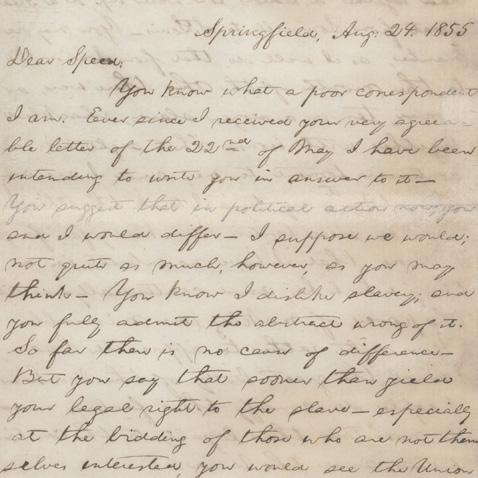 Springfield, Aug: 24. 1855
Dear Speed:
You know what a poor correspondent
I am. Ever since I received your very agreea-
ble letter of the 22nd of May I have been
intending to write you in answer to it—
You suggest that in political action now, you
and I would differ— I suppose we would;
not quite as much, however, as you may
think— You know I dislike slavery; and
you fully admit the abstract wrong of it.
So far there is no cause of difference—
But you say that sooner than yield
your legal right to the slave— especially
at the bidding of those who are not them
selves interested, you would see the Union